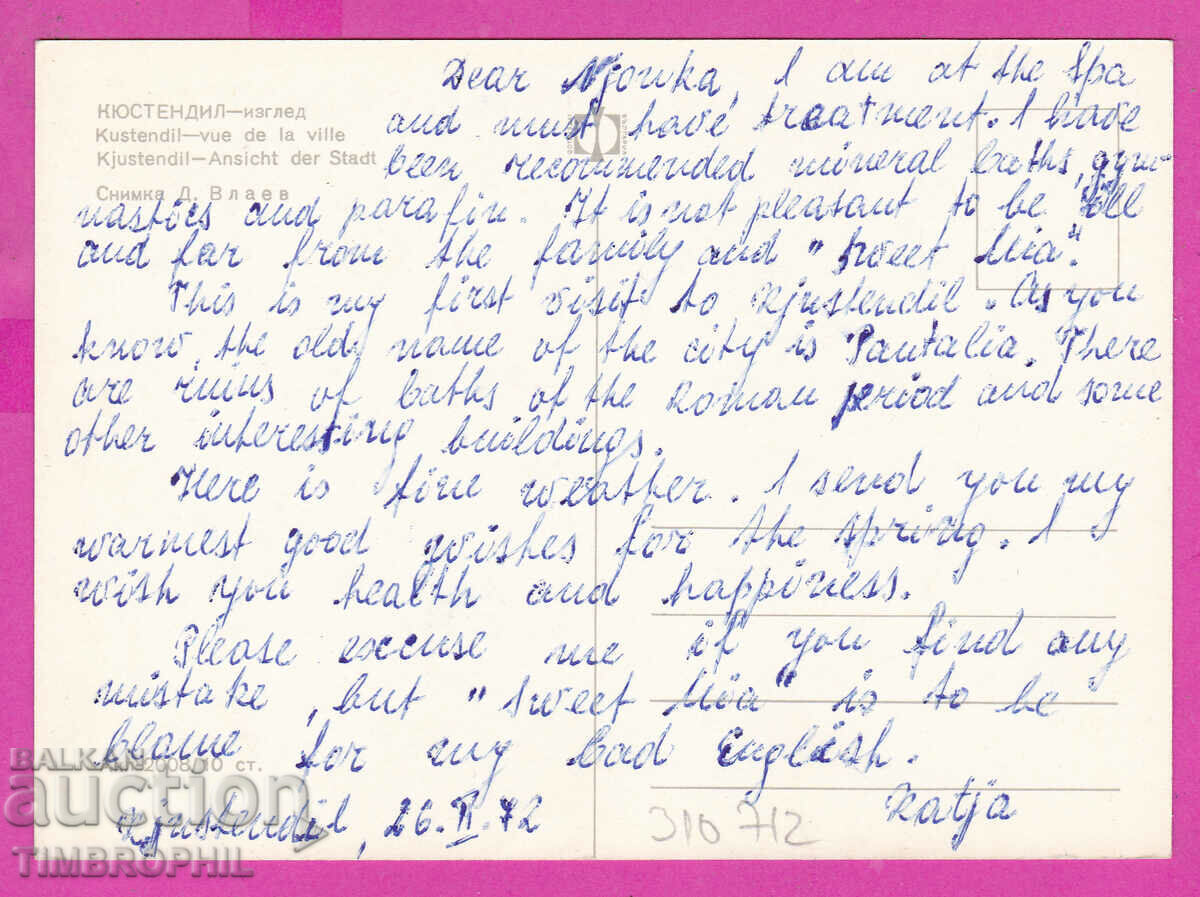 Dear Njonka, I am at the Spa
and must have treatment. I have
been recommended mineral baths, gym
nastics and parafin. It is not pleasant to be ill
and far from the family and "sweet Mia".
This is my first visit to Kjustendil. As you
know, the old name of the city is Pautalia. There
are ruins of baths of the Roman period and some
other interessting buildings.
Here is fine weather. I send you my
warmest good wishes for the spring. I
wish you health and happiness.
Please excuse me if you find any
mistake, but "sweet Mia" is to be
blame for my bad English.
Katja
Kjustendil, 26.II.72
КЮСТЕНДИЛ—изглед
Kustendil—vue de la ville
Kjustendil—Ansicht der Stadt
Снимка Д. Влаев
2008/10 ст.
310 712
BALKAN
auction
TIMBROPHIL